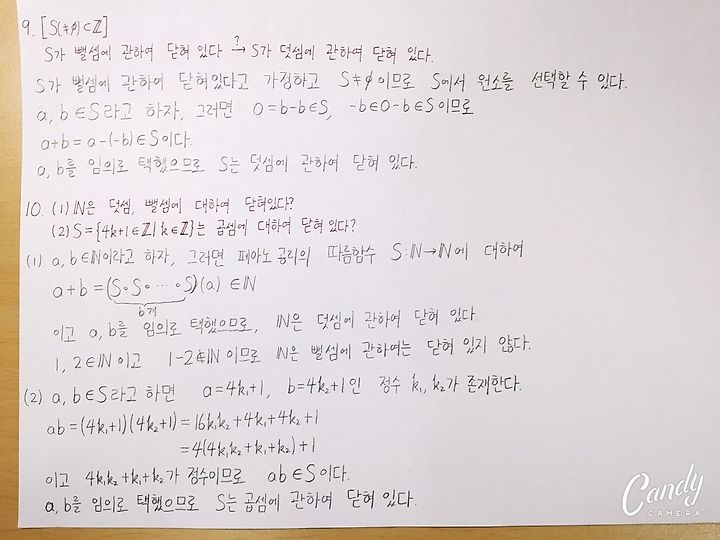 9. [S(≠∅)⊂ℤ]
S가 뺄셈에 관하여 닫혀 있다 →? S가 덧셈에 관하여 닫혀 있다.
S가 뺄셈에 관하여 닫혀있다고 가정하고 S≠∅이므로 S에서 원소를 선택할 수 있다.
a, b∈S라고 하자, 그러면 0=b-b∈S, -b∈0-b∈S이므로
a+b=a-(-b)∈S이다.
a, b를 임의로 택했으므로 S는 덧셈에 관하여 닫혀 있다.
10. (1) ℕ은 덧셈, 뺄셈에 대하여 닫혀있다?
(2) S={4k+1∈ℤ| k∈ℤ}는 곱셈에 대하여 닫혀 있다?
(1) a, b∈ℕ이라고 하자, 그러면 페아노 공리의 따름함수 S:ℕ→ℕ에 대하여
a+b=(S∘S∘⋯∘S)(a) ∈ℕ
b개
이고 a, b를 임의로 택했으므로, ℕ은 덧셈에 관하여 닫혀 있다.
1, 2∈ℕ이고 1-2∉ℕ이므로 ℕ은 뺄셈에 관하여는 닫혀 있지 않다.
(2) a, b∈S라고 하면 a=4k₁+1, b=4k₂+1인 정수 k₁, k₂가 존재한다.
ab=(4k₁+1)(4k₂+1)=16k₁k₂+4k₁+4k₂+1
=4(4k₁k₂+k₁+k₂)+1
이고 4k₁k₂+k₁+k₂가 정수이므로 ab∈S이다.
a, b를 임의로 택했으므로 S는 곱셈에 관하여 닫혀 있다.
Candy
CAMERA